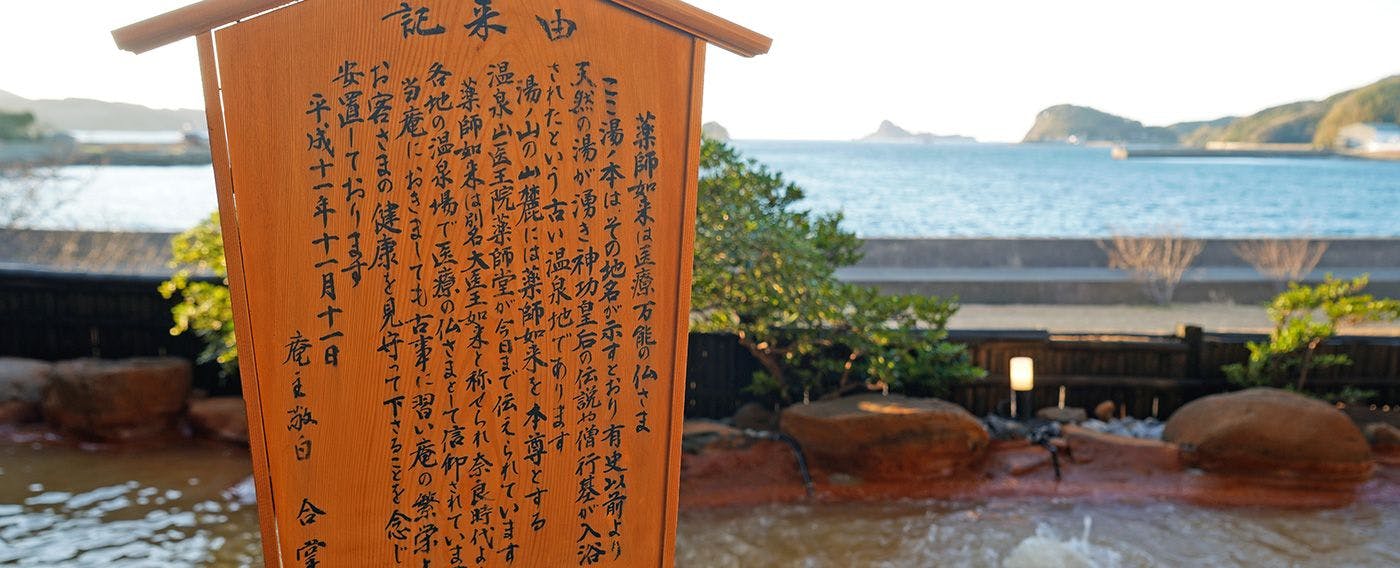 由来記
薬師如来は医療万能の仏さま
ここ湯ノ本は、その地名が示すとおり有史以前より
天然の湯が湧き神功皇后の伝説や僧行基が入浴
されたという古い温泉地であります
湯ノ山の山麓には薬師如来を本尊とする
温泉山医王院薬師堂が今日まで伝えられています
薬師如来は別名大医王如来と称せられ奈良時代よ
各地の温泉場で医療の仏さまとして信仰されていま
当庵におきましても古事に習い庵の繁栄と
お客さまの健康を見守って下さることを念じ
安置しております
平成十一年十一月十一日
庵主敬白 合掌